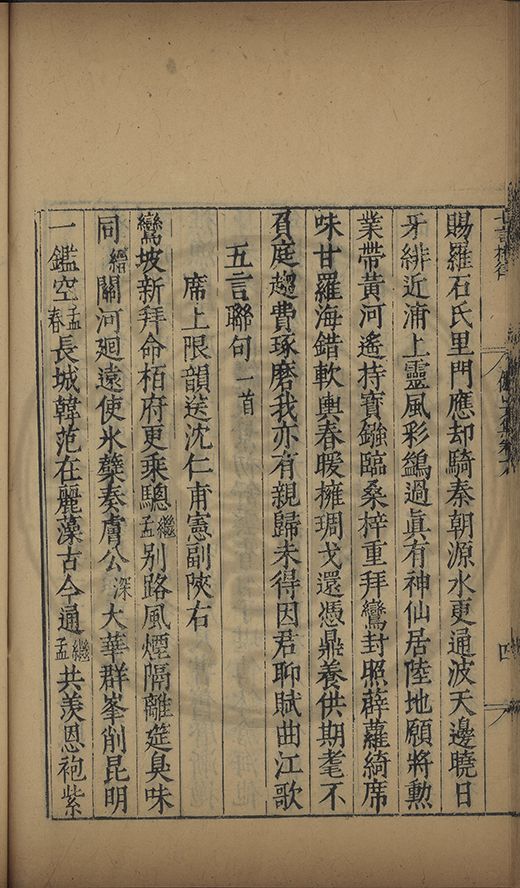 賜羅石氏里門應却騎秦朝源水更通波天邊曉日
牙緋近浦上靈風彩鷁過眞有神仙居陸地願將勲
業帶黃河遙持寶鏹臨桑梓重拜鸞封照薜蘿綺席
味甘羅海錯軟輿春暖擁琱戈還憑鼎養供期耄不
頁庭趨費琢磨我亦有親歸未得因君聊賦曲江歌
五言聯句一首
席上限韻送沈仁甫憲副陝右
鸞坡新拜命栢府更乘驄繼孟别路風煙隔離筵臭味
同繒關河廻遠使氷蘖奏膚公深大華群峯削昆明
一鑑空孟春長城韓范在麗藻古今通繼孟共羨恩袍紫